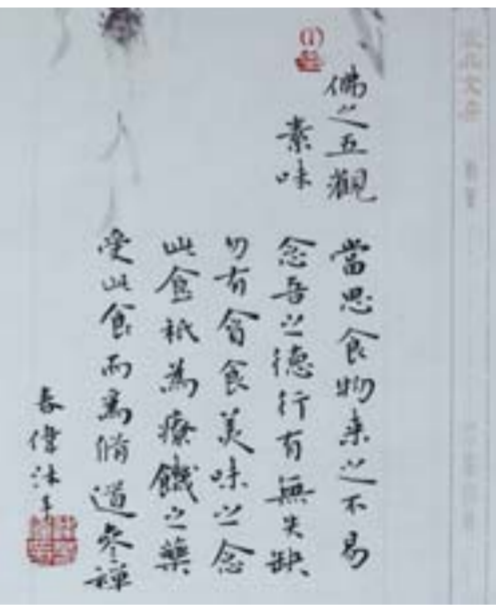 佛之五觀
素味
當思食物来之不易
念吾之德行有無失缺
勿有貪食美味之念
此食祇為療饑之藥
受此食而為脩道參禪
春偉沐手